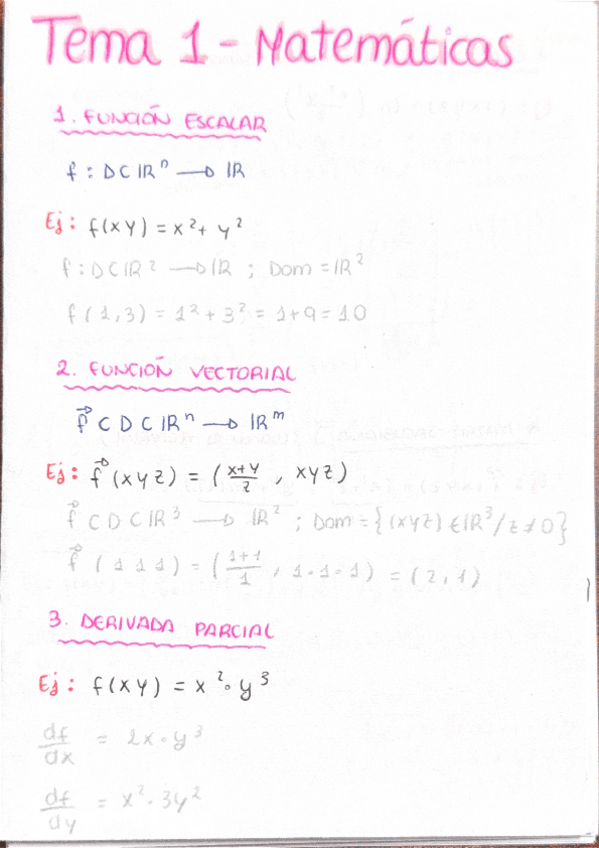 Tema 1 - Matemáticas
1. FUNCIÓN ESCALAR
f : D C IRⁿ → IR
Ej: f(x y) = x² + y²
f : D C IR² → IR ; Dom = IR²
f(1,3) = 1² + 3² = 1+9 = 10
2. FUNCIÓN VECTORIAL
f⃗ C D C IRⁿ → IRᵐ
Ej: f⃗(x y z) = (x+y/z , xyz)
f⃗ C D C IR³ → IR² ; Dom = {(xyz) ∈ IR³ / z ≠ 0}
f⃗(1 1 1) = (1+1/1 , 1·1·1) = (2,1)
3. DERIVADA PARCIAL
Ej: f(x y) = x² · y³
df/dx = 2x · y³
df/dy = x² · 3y²